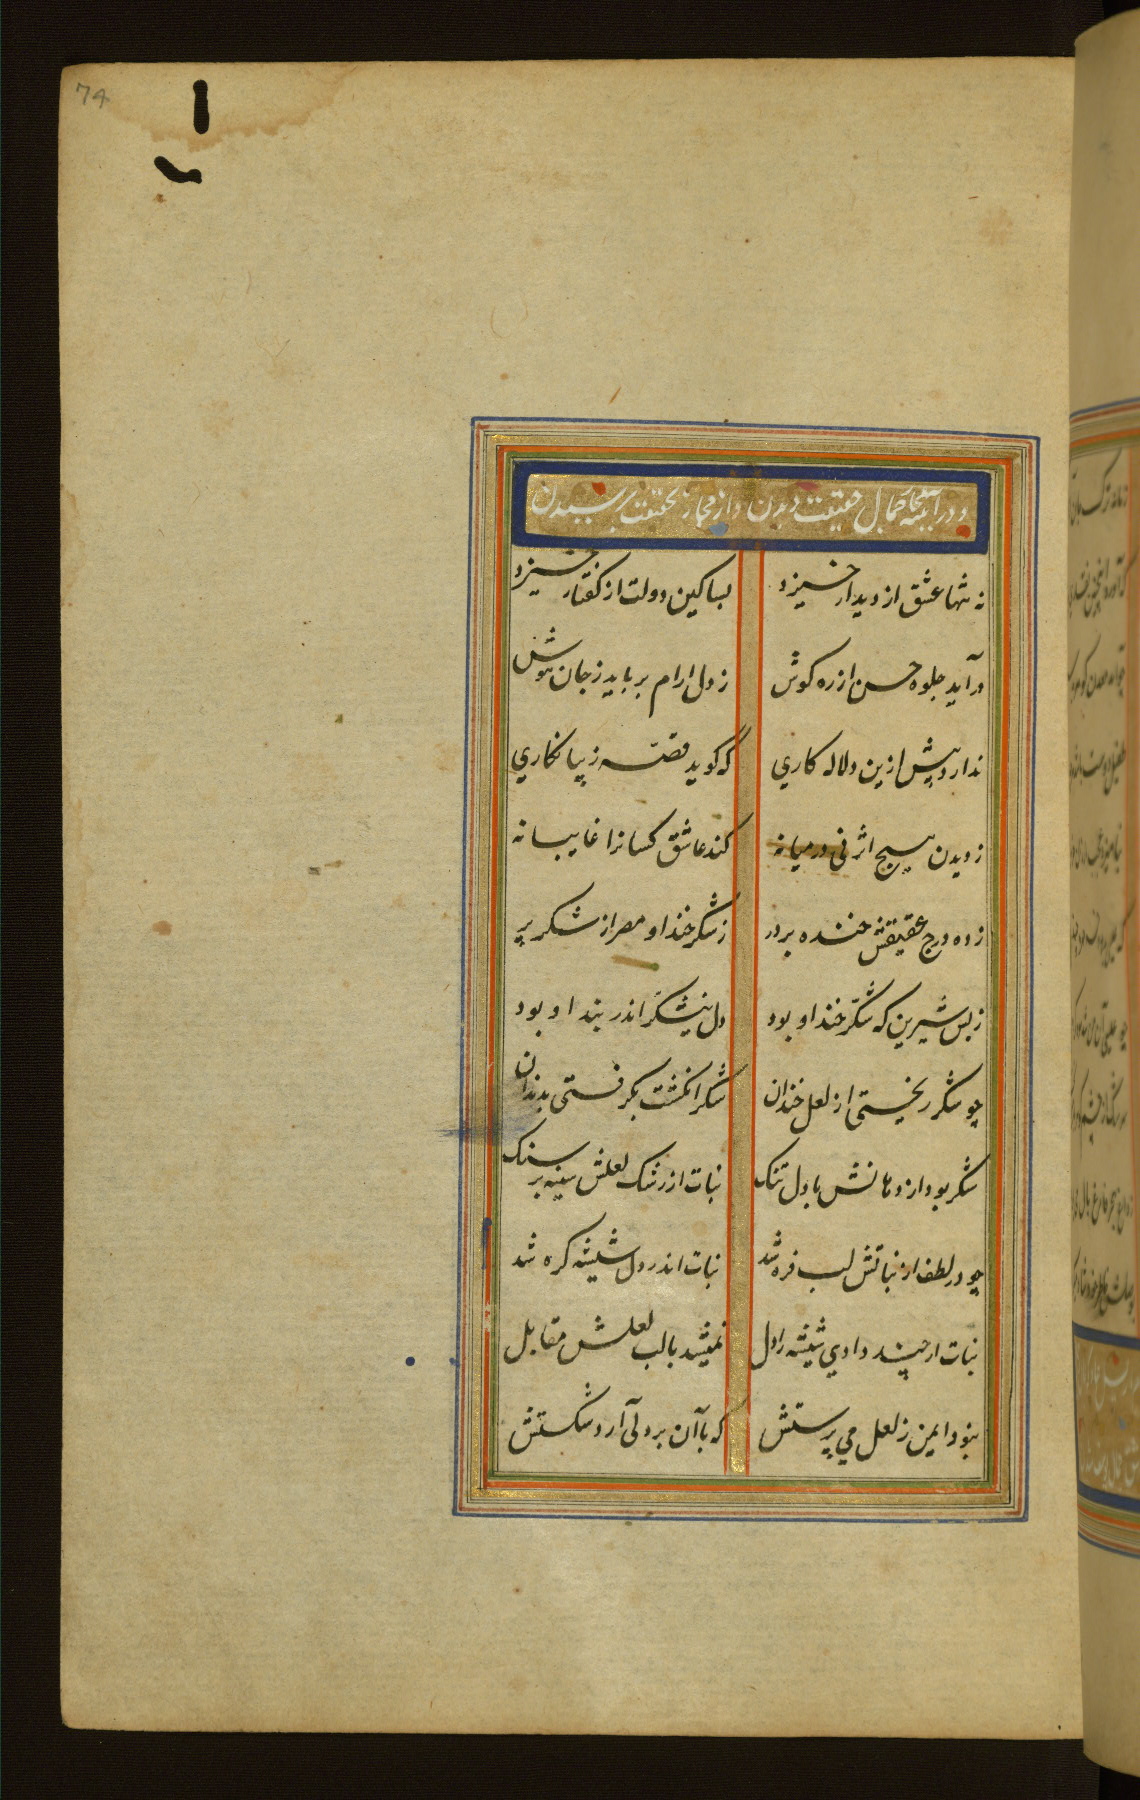 74
و در آیینه جمال حقیقت دیدن و از مجاز بحقیقت رسیدن
نه تنها عشق از دیدار خیزد بسا کین دولت از گفتار خیزد
درآید جلوه حسن از ره کوش ز دل ارام برباید ز جان هوش
ندارد پیش ازین دلاله کاری که گوید قصه زیبا نکاری
ز دیدن هیچ اثر نی در میانه کند عاشق کسانرا غایبانه
زده درج عقیقش خنده بر در ز شکر خند او مصر از شکر پر
ز بس شیرین که شکر خند او بود دل نیشکر اندر بند او بود
چو شکر ریختی از لعل خندان شکر انکشت بکرفتی بدندان
شکر بود از دهانش با دل تنک نبات از رشک لعلش سینه بر سنک
چو در لطف از نباتش لب فره شد نبات اندر دل شیشه کره شد
نبات ار چند دادی شیشه را دل نمیشد با لب لعلش مقابل
نبود ایمن ز لعل می پرستش که با آن بردلی آرد شکستش